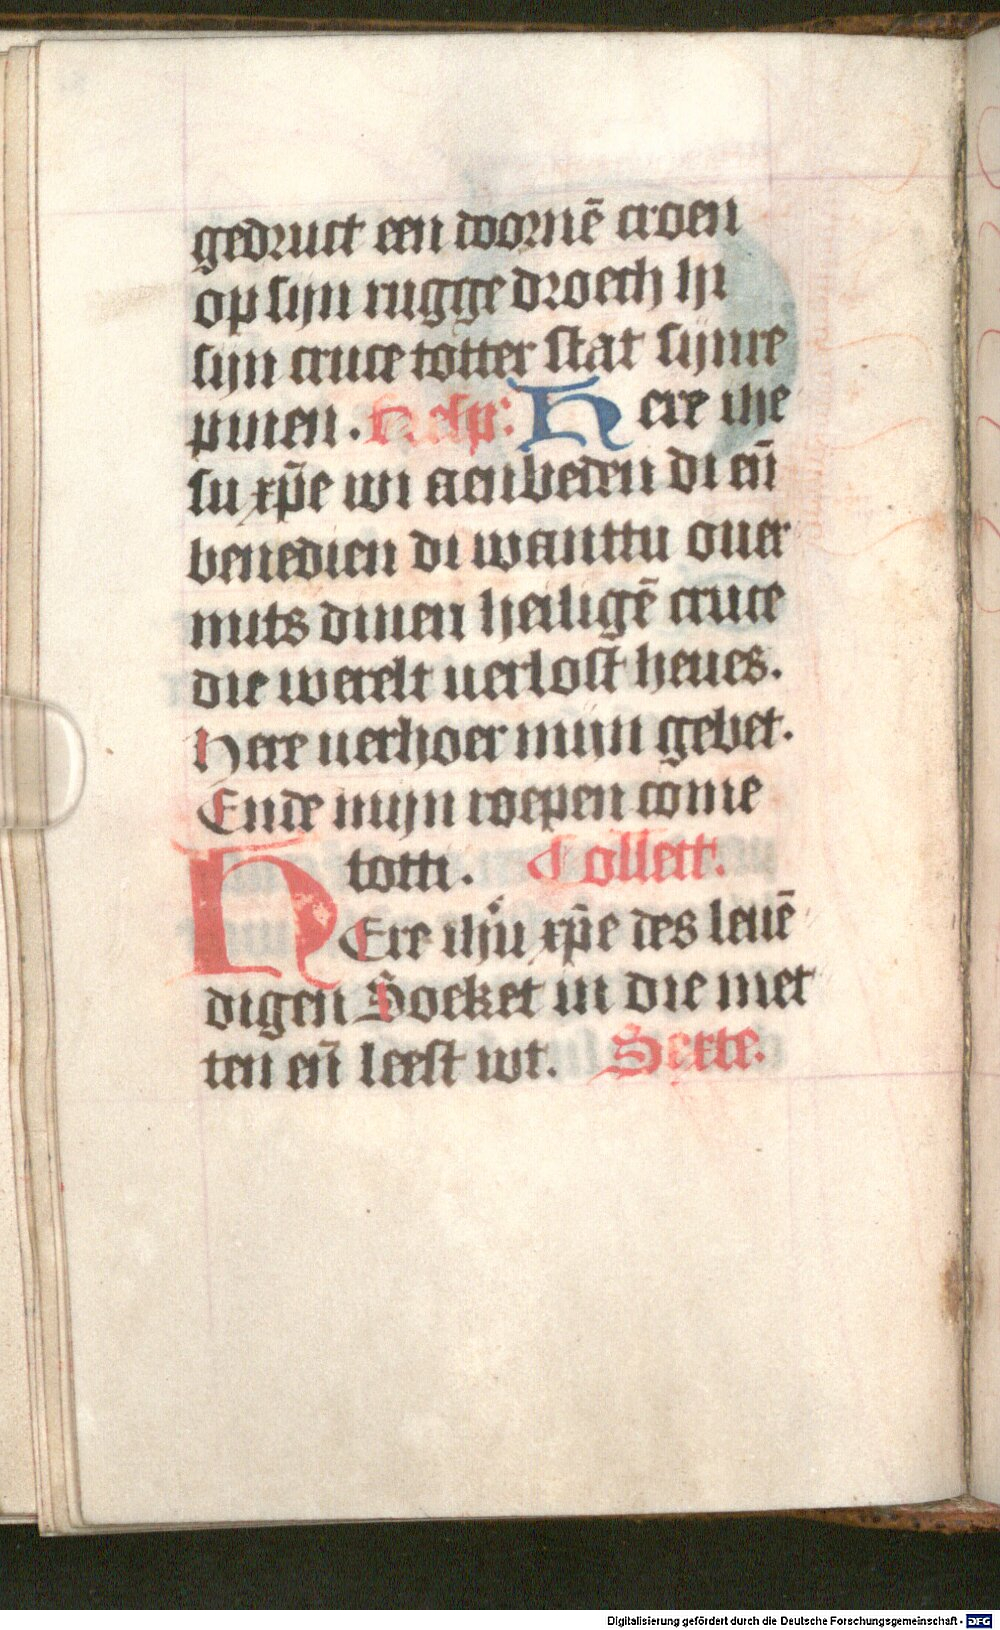 gedruct een doornē croen
op sijn rugge droech hi
sijn cruce totter stat sijnre
pinen. Resp: Here ihe
su xp̄e wi aenbeden di en̄
benedien di wanttu ouer
mits dinen heiligē cruce
die werelt uerlost heues.
Here uerhoer mijn gebet.
Ende mijn roepen come
totti. Collett.
HEre ihū xp̄e des leuē
digen Soeket in die met
ten en̄ leest wt. Sexte.
Digitalisierung gefördert durch die Deutsche Forschungsgemeinschaft - DFG